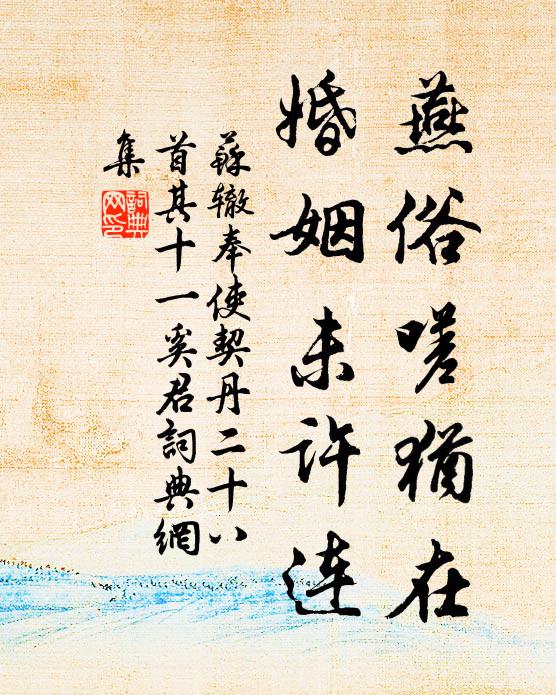 燕俗嗟猶在
婚姻未许连
蘇辙奉使契丹二十八
首其十一奚君詞典網
集
詞典
网印